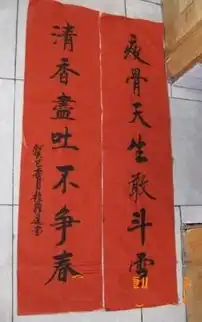 瘦骨天生敢斗雪
清香盡吐不争春